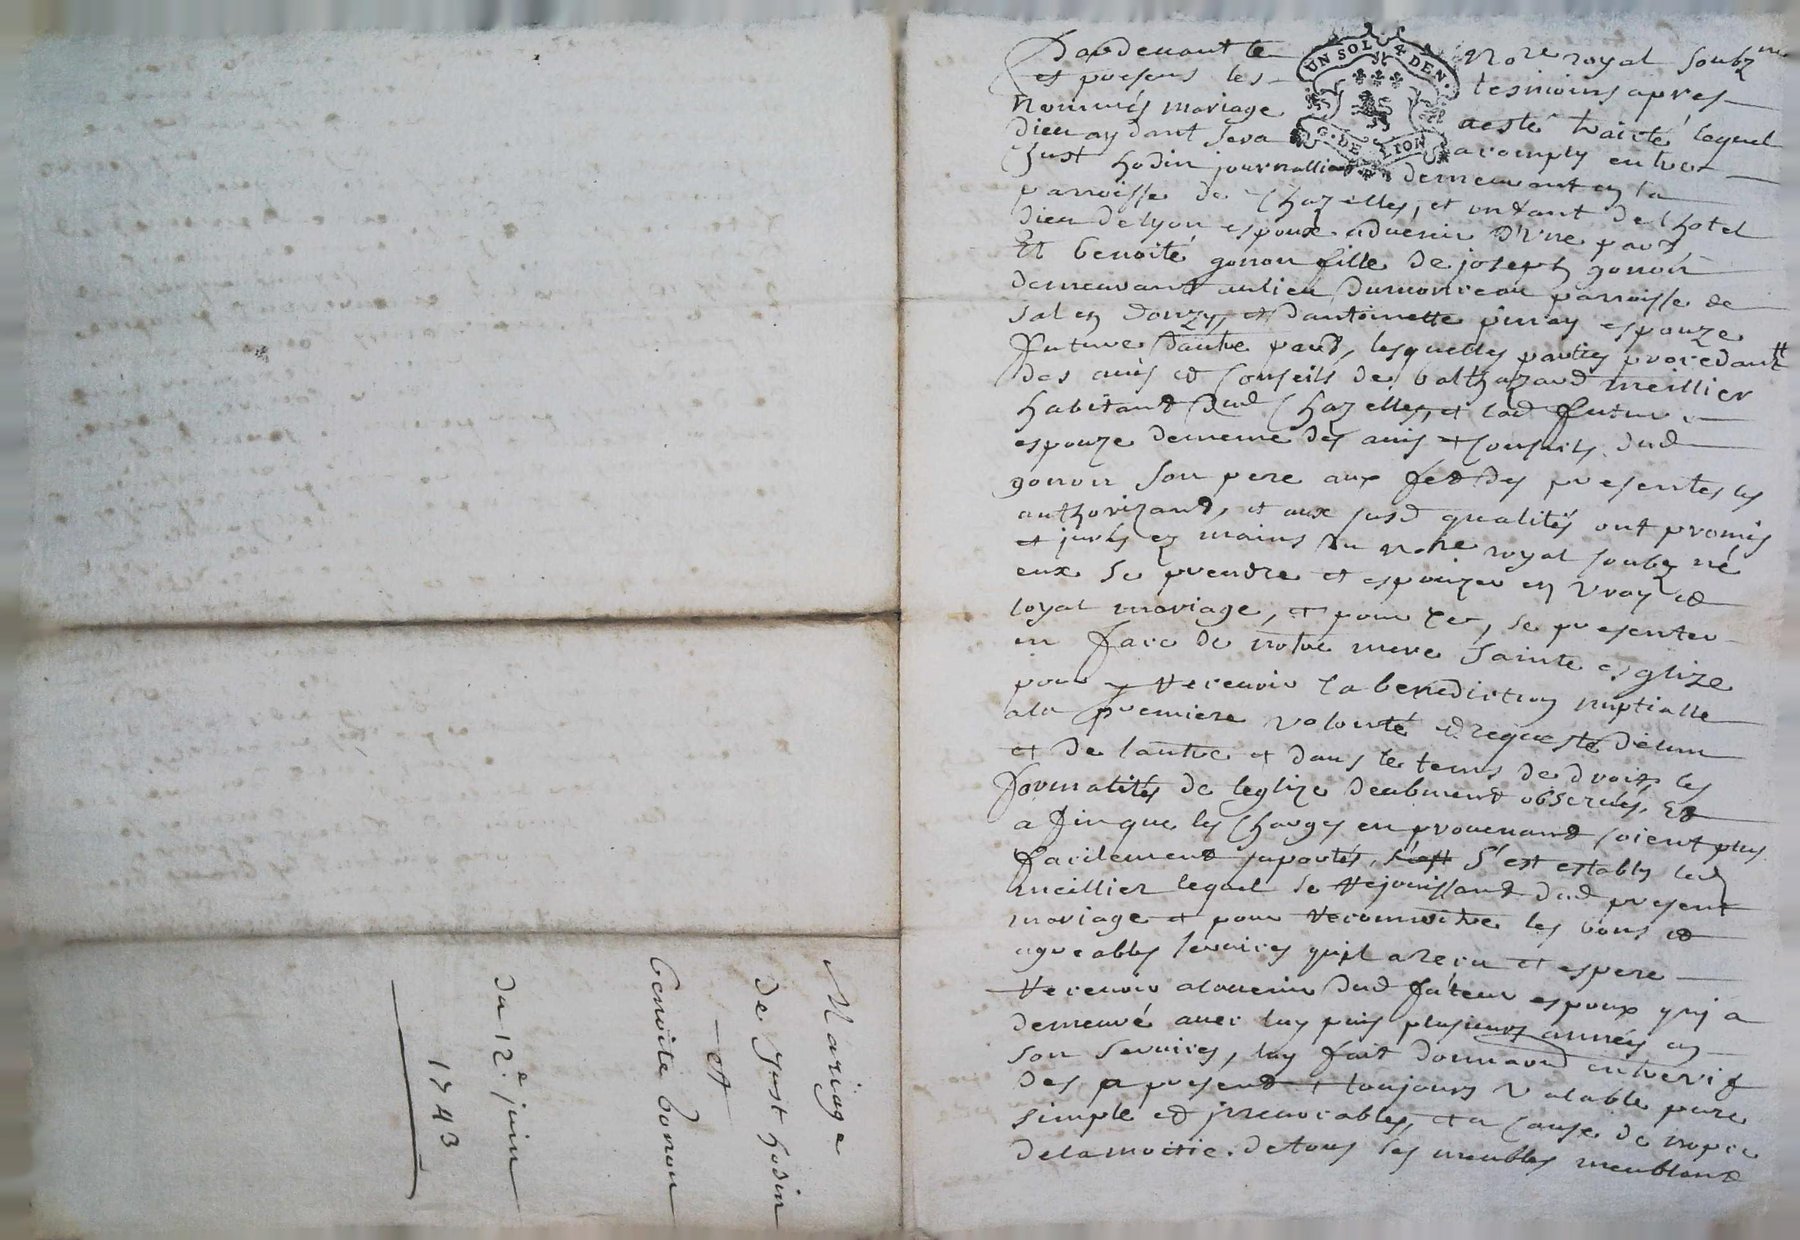 Mariage
de Just hodin
et
Benoite Gonon
du 12e juin
1743
UN SOL 4 DEN.
G. DE LION
Pardevant le Nore royal soubzne
et presens les tesmoins apres
nommés mariage a esté traité lequel
dieu aydant sera acomply entre
Just hodin journallier demeurant en la
parroisse de Chazelles, et enfant de lhotel
dieu de lyon espoux aduenir d'Vne part
Et benoite gonon fille de joseph gonon
demeurant au lieu dumonceau parroisse de
sal en donzy, et dantoinette pinay espouze
future dautre part, lesquelles parties procedant
des auis et Conseils de balthazard meillier
habitant dud Chazelles, et lad future
espouze de meme des auis et Conseils dud
gonon son pere aux fet des presentes les
authorizant, et aux susd qualités ont promis
et jurés es mains du nore royal soubz né
eux se prendre et espouzer en vray et
loyal mariage, et pour ce, se presenter
en face de notre mere sainte esglize
pour y receuoir la benediction nuptialle
a la premiere volonté et requeste de lun
et de lautre et dans le tems de droit les
formalités de leglize deubment obserués, Et
afin que les Charges en prouenant soient plus
facilement suportés, s'est s'est estably led
meillier lequel se rejouissant dud present
mariage et pour reconnoitre les bons et
agreables seruices quil a receu et espere
receuoir alauenir dud futeur espoux quj a
demeuré auec luy puis plusieurs années en
son seruices, luy fait donnaon entrevif
des a present et toujours valable pure
simple et jrreuocables, et a Cause de nopce
de la moitie de tous les meubles meublant